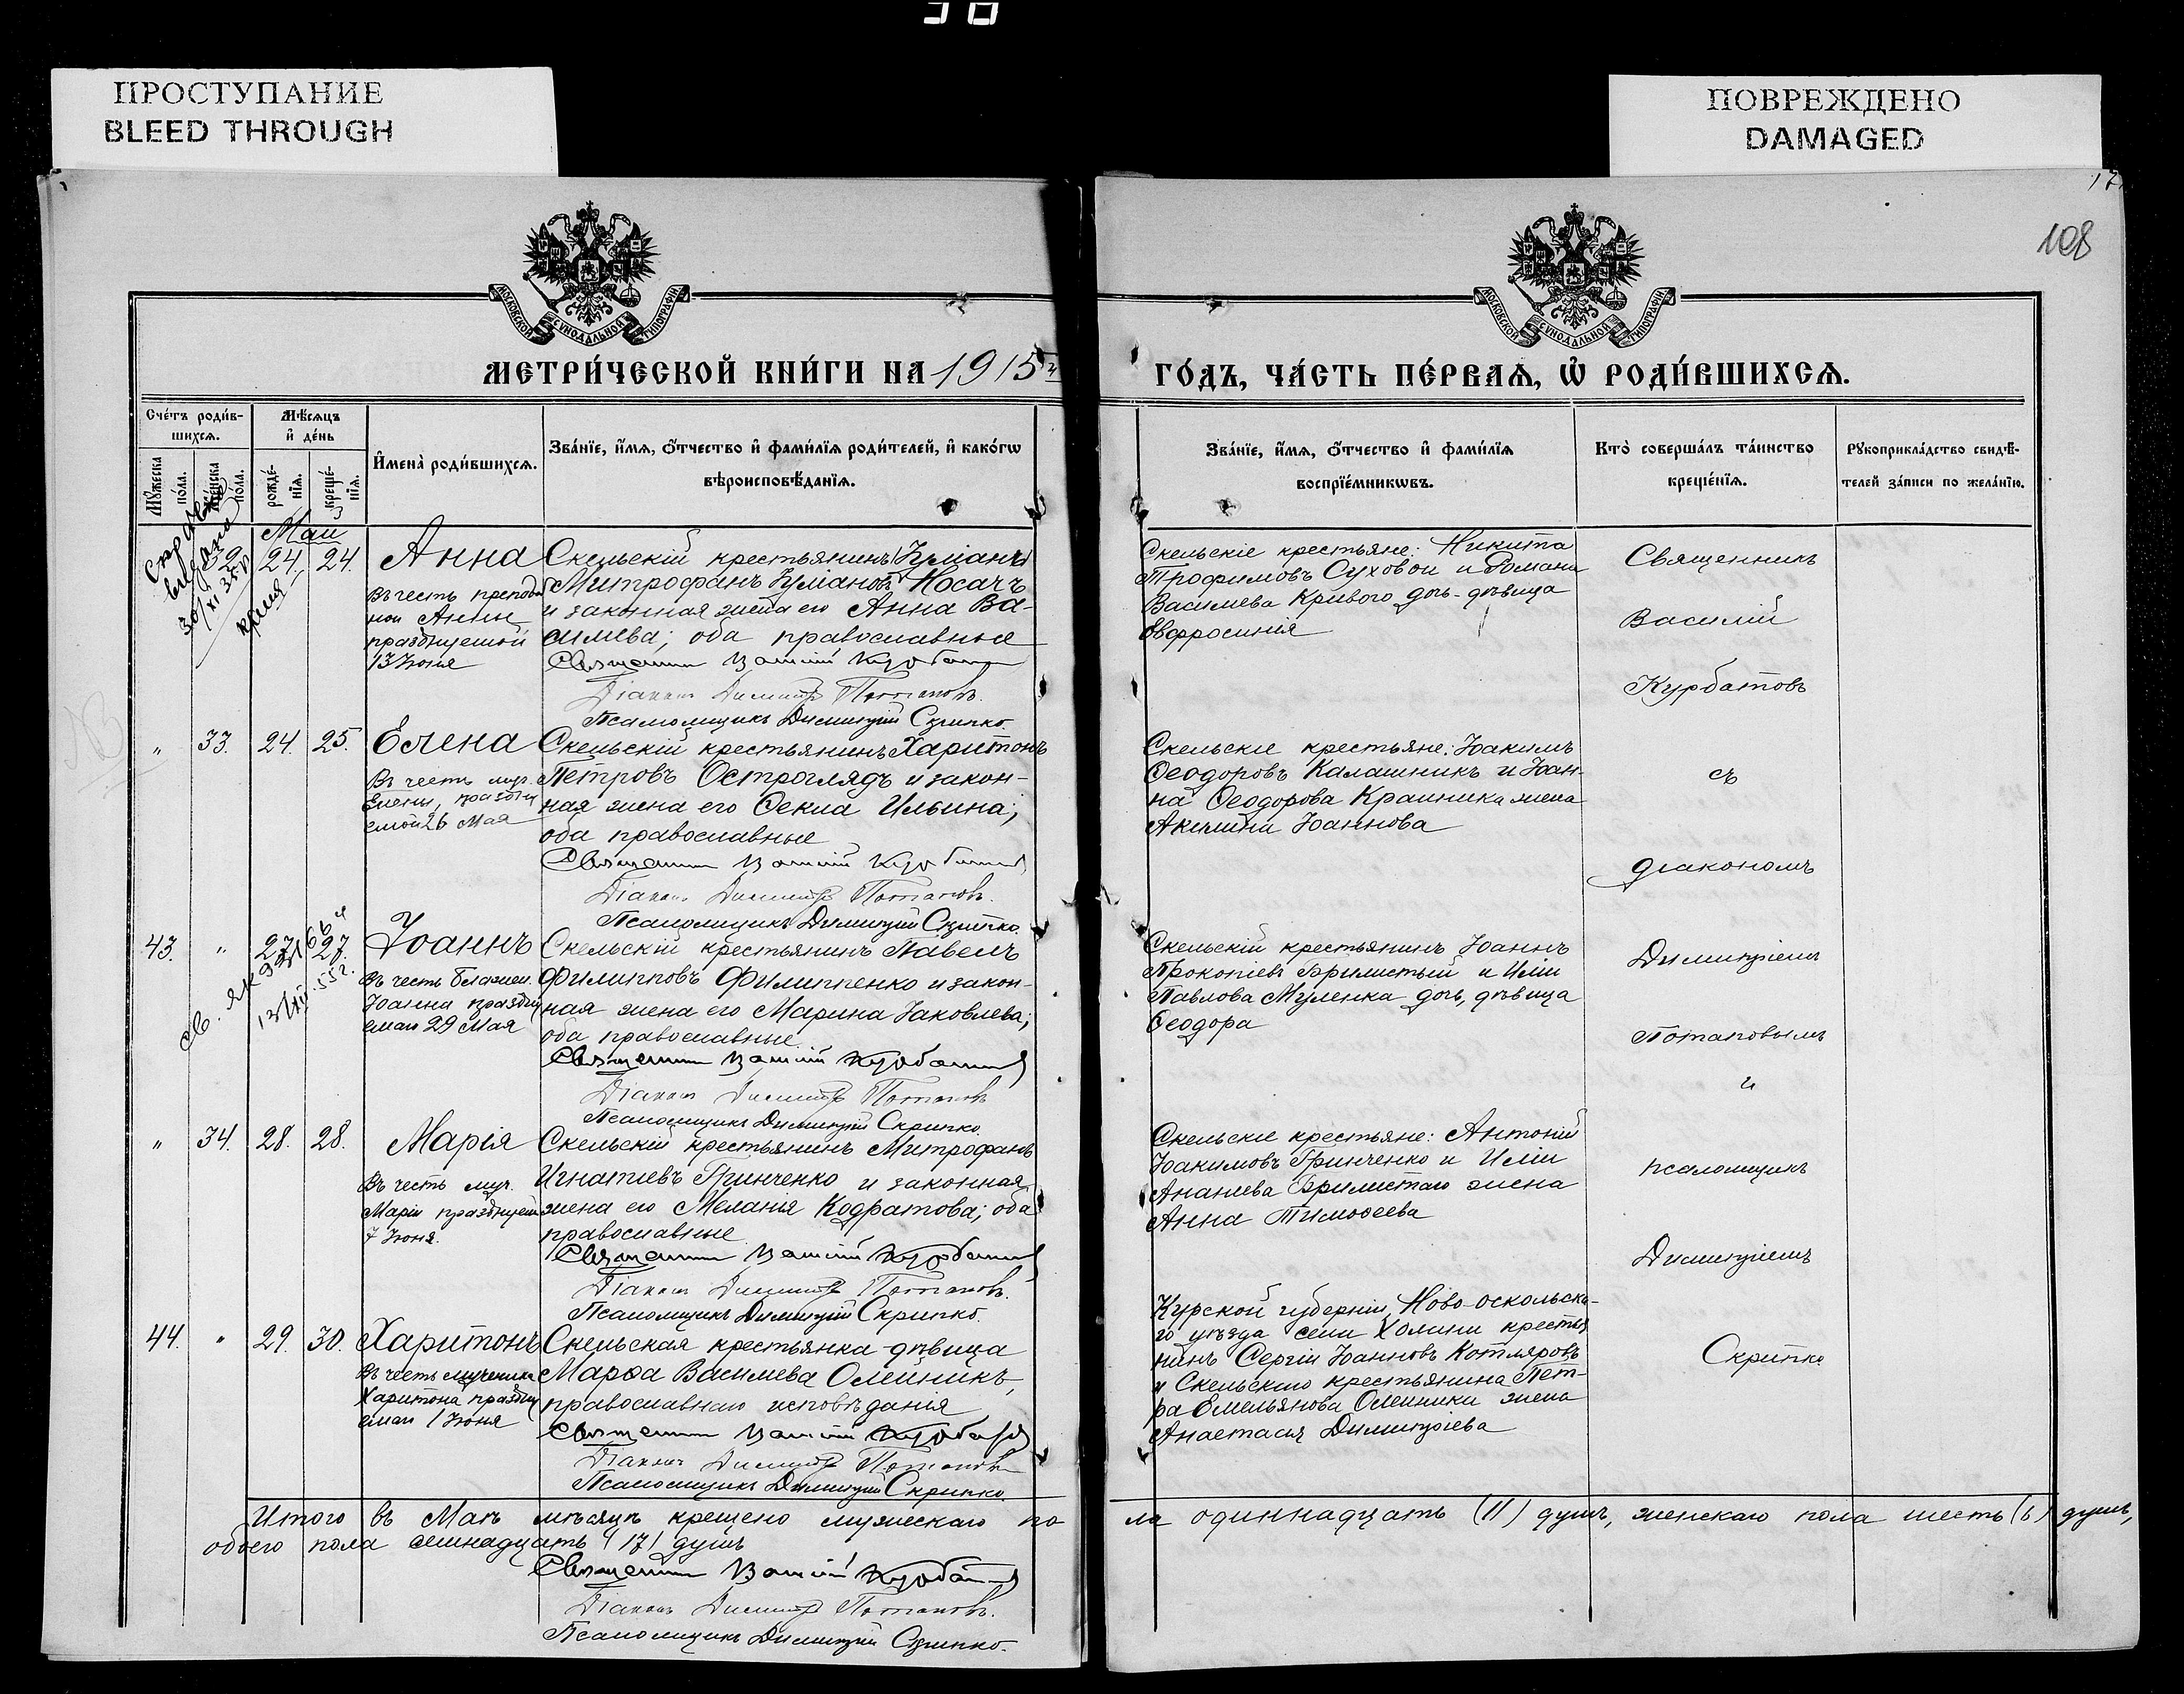 ПРОСТУПАНИЕ
BLEED THROUGH
ПОВРЕЖДЕНО
DAMAGED
108
МОСКОВСКОЙ СѴНОДАЛЬНОЙ ТИПОГРАФІИ
МОСКОВСКОЙ СѴНОДАЛЬНОЙ ТИПОГРАФІИ
МЕТРИ́ЧЕСКОЙ КНИ́ГИ НА 1915й
ГО́ДЪ, ЧА́СТЬ ПЕ́РВАѦ, Ѡ҆ РОДИ́ВШИХСѦ.
Сче́тъ роди́в-
шихсѧ.
Мѣ́сѧцъ
и҆ де́нь
Мꙋ́жеска
по́ла.
Же́нска
по́ла.
рожде́-
нїѧ.
креще́-
нїѧ.
И҆мена̀ роди́вшихсѧ.
Зва́нїе, и҆́мѧ, ѻ҆́тчество и҆ фами́лїѧ роди́телей, и҆ како́гѡ
вѣроисповѣ́данїѧ.
Зва́нїе, и҆́мѧ, ѻ҆́тчество и҆ фами́лїѧ
воспрїе́мникѡвъ.
Кто̀ соверша́лъ та́инство
креще́нїѧ.
Рꙋкоприкла́дство свидѣ́-
телей за́писи по жела́нїю.
Маи
32. 24. 24. Анна
Въ честь преподоб
ной Анны
празднуемой
13 Іюня
Скельскій крестьянинъ
Митрофанъ Іуліановъ Носачъ
и законная жена его Анна Ва-
сильева; оба православные
Священникъ Василій Курбатовъ
Діаконъ Димитрій Потаповъ.
Псаломщикъ Димитрій Скрипко.
Скельскіе крестьяне: Никита
Трофимовъ Суховой и Романа
Василіева Кривого дочь-дѣвица
Евфросинія
Священникъ
Василій
Курбатовъ
съ
діакономъ
Димитріемъ
Потаповымъ
и
псаломщикъ
Димитріемъ
Скрипко
" 33. 24. 25. Елена
Въ честь муч.
Елены, праздну
емой 26 Мая
Скельскій крестьянинъ Харитонъ
Петровъ Остроглядъ и закон-
ная жена его Ѳекла Ильина;
оба православные
Священникъ Василій Курбатовъ
Діаконъ Димитрій Потаповъ.
Псаломщикъ Димитрій Скрипко.
Скельскіе крестьяне: Іоакимъ
Ѳеодоровъ Калашникъ и Іоан-
на Ѳеодорова Крайника жена
Акилина Іоаннова
43. " 27. 27. Іоаннъ
Въ честь блажен.
Іоанна праздну
емаго 29 Мая
Скельскій крестьянинъ Павелъ
Филипповъ Филиппенко и закон-
ная жена его Марина Іаковлева;
оба православные.
Священникъ Василій Курбатовъ
Діаконъ Димитрій Потаповъ
Псаломщикъ Димитрій Скрипко.
Скельскій крестьянинъ Іоаннъ
Прокопіевъ Брилистый и Иліи
Павлова Муленка дочь, дѣвица
Ѳеодора
" 34. 28. 28. Марія
Въ честь муч.
Маріи празднуемой
7 Іюня.
Скельскій крестьянинъ Митрофанъ
Игнатіевъ Гринченко и законная
жена его Меланія Кодратова; оба
православные.
Священникъ Василій Курбатовъ
Діаконъ Димитрій Потаповъ.
Псаломщикъ Димитрій Скрипко.
Скельскіе крестьяне: Антоній
Іоакимовъ Гринченко и Иліи
Ананіева Брилистаго жена
Анна Тимоѳеева
44. " 29. 30. Харитонъ
Въ честь мученика
Харитона праздну
емаго 1 Іюня
Скельская крестьянка дѣвица
Марѳа Василіева Олейникъ,
православнаго исповѣданія
Священникъ Василій Курбатовъ
Діаконъ Димитрій Потаповъ
Псаломщикъ Димитрій Скрипко.
Курской губерніи, Ново-оскольска-
го уѣзда села Холани крестья
нинъ Сергій Іоанновъ Котляровъ
и Скельскаго крестьянина Пет-
ра Емельянова Олейника жена
Анастасія Димитріева
Итого въ Маѣ мѣсяцѣ крещено мужескаго по ла одиннадцать (11) душъ, женскаго пола шесть (6) душъ,
обоего пола семнадцать (17) душъ
Священникъ Василій Курбатовъ
Діаконъ Димитрій Потаповъ.
Псаломщикъ Димитрій Скрипко.